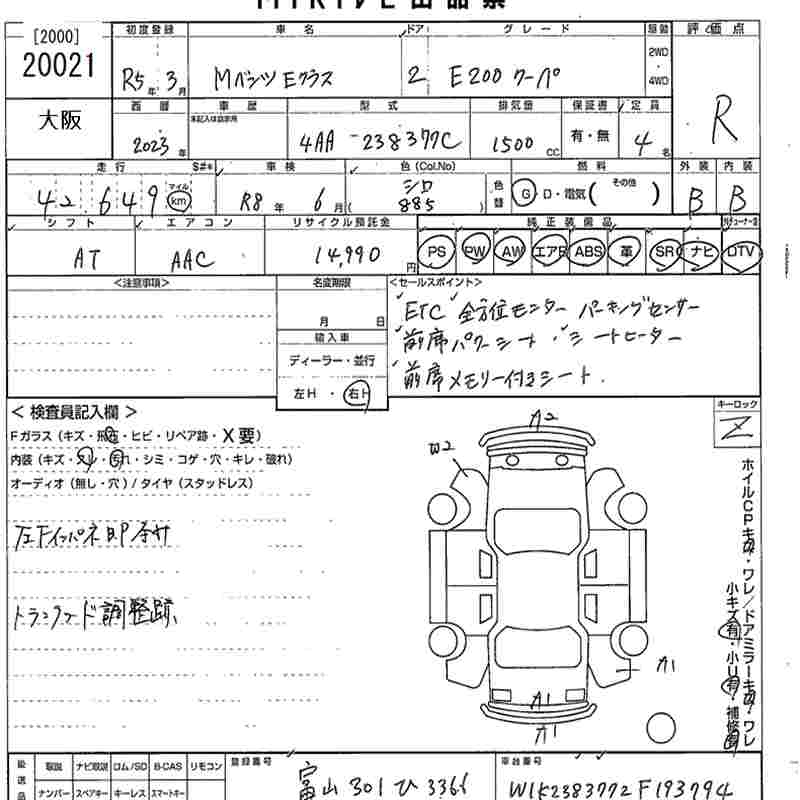 MIRIVE出品票
[2000]
20021
大阪
初度登録 車名 ドア グレード 駆動 評価点
R5年3月 Mベンツ Eクラス 2 E200クーペ 2WD・4WD R
西暦 車歴 型式 排気量 保証書 定員
未記入は自家用
2023年 4AA-238377C 1500cc 有・無 4名
走行 S#* 車検 色(Col.No) 燃料 外装 内装
42,649 マイル km R8年6月 シロ ( 885 ) 色替 G・D・電気( その他 ) B B
シフト エアコン リサイクル預託金 純正装備品
AT AAC 14,990円 PS PW AW エアB ABS 革 SR ナビ DTV
<注意事項> 名変期限 <セールスポイント>
月 日
輸入車
ディーラー・並行
左H・右H
ETC 全方位モニター パーキングセンサー
前席パワーシート・シートヒーター
前席メモリー付きシート.
キーロック
Z
<検査員記入欄>
Fガラス(キズ・飛石・ヒビ・リペア跡・X要)
内装(キズ・スレ・汚れ・シミ・コゲ・穴・キレ・破れ)
オーディオ(無し・穴)/タイヤ(スタッドレス)
左Fインパネ
トランクフード調整跡、
A2
W2
A1
A1
A1
ホイルCPキズ・ワレ/ドアミラーキズ・ワレ
小キズ有・小U有・補修跡
後送品
取説 ナビ取説 ロム/SD B-CAS リモコン
ナンバー スペアキー キーレス スマートキー
登録番号
富山 301 ひ 3366
車台番号
W1K2383772F193794